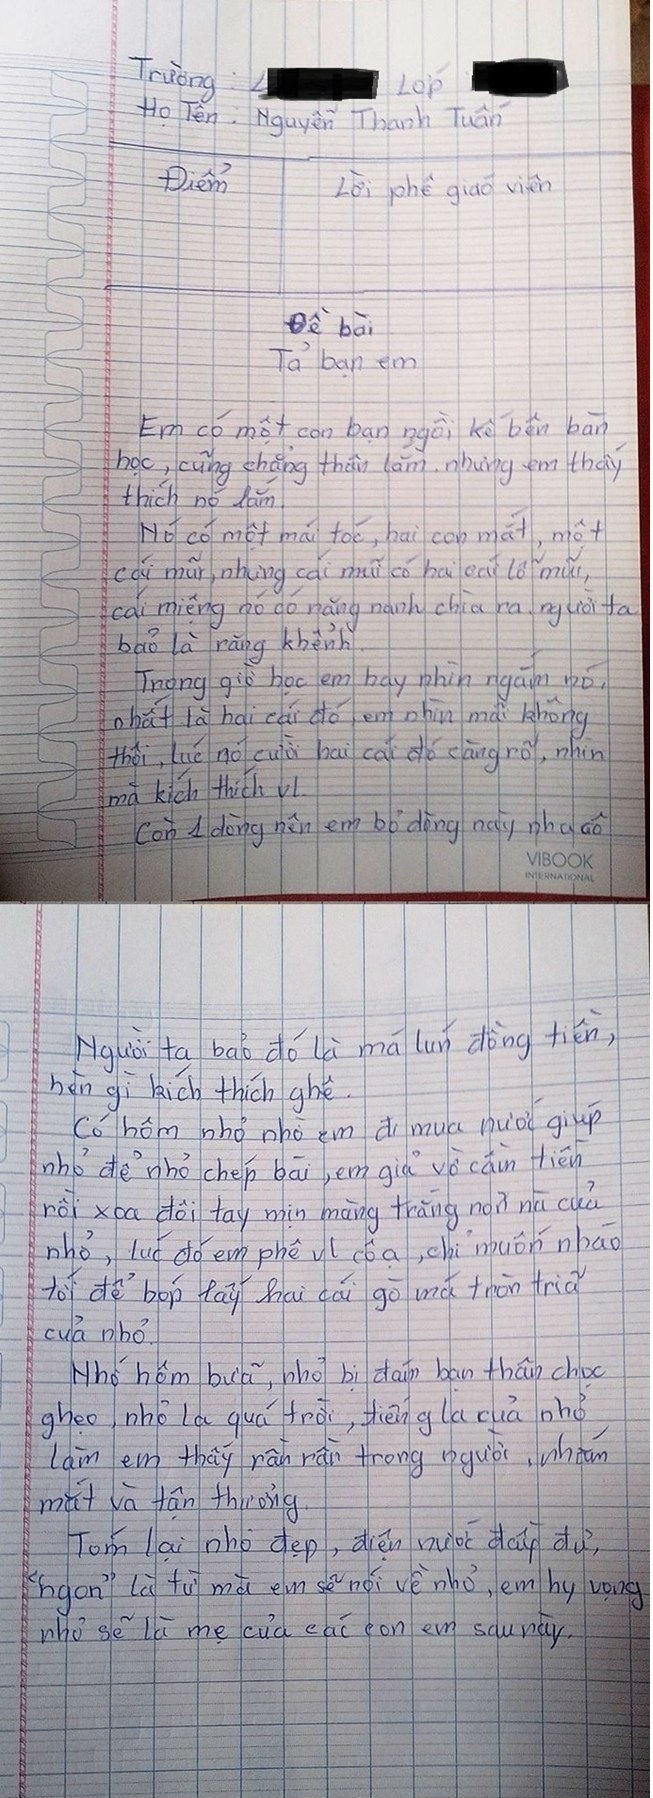 Trường: L Lớp
Họ Tên: Nguyễn Thanh Tuấn
Điểm Lời phê giáo viên
Đề bài
Tả bạn em
Em có một con bạn ngồi kế bên bàn
học, cũng chẳng thân lắm, nhưng em thấy
thích nó lắm.
Nó có một mái tóc, hai con mắt, một
cái mũi, nhưng cái mũi có hai cái lỗ mũi,
cái miệng nó có răng nanh chìa ra, người ta
bảo là răng khểnh.
Trong giờ học em hay nhìn ngắm nó,
nhất là hai cái đó, em nhìn mãi không
thôi, lúc nó cười hai cái đó càng rõ, nhìn
mà kích thích vl.
Còn 1 dòng nên em bỏ dòng này nha cô
VIBOOK
INTERNATIONAL
Người ta bảo đó là má lún đồng tiền,
hèn gì kích thích ghê.
Có hôm nhỏ nhờ em đi mua nước giúp
nhỏ để nhỏ chép bài, em giả vờ cầm tiền
rồi xoa đôi tay mịn màng trắng nõn nà của
nhỏ, lúc đó em phê vl cô ạ, chỉ muốn nhào
tới để bóp lấy hai cái gò má tròn trĩa
của nhỏ.
Nhớ hôm bữa, nhỏ bị đám bạn thân chọc
ghẹo, nhỏ la quá trời, tiếng la của nhỏ
làm em thấy rần rần trong người, nhắm
mắt và tận thưởng.
Tóm lại nhỏ đẹp, điện nước đầy đủ,
"ngon" là từ mà em sẽ nói về nhỏ, em hy vọng
nhỏ sẽ là mẹ của các con em sau này.